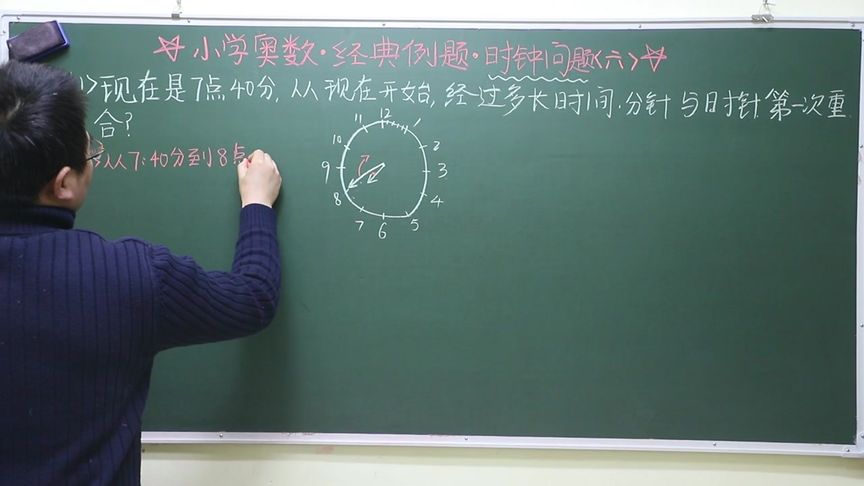 ☆小学奥数·经典例题·时钟问题(六)☆
1>现在是7点40分,从现在开始,经过多长时间.分针与时针第一次重
合?
从7:40分到8点
12
11
1
10
2
9
3
8
4
7
5
6